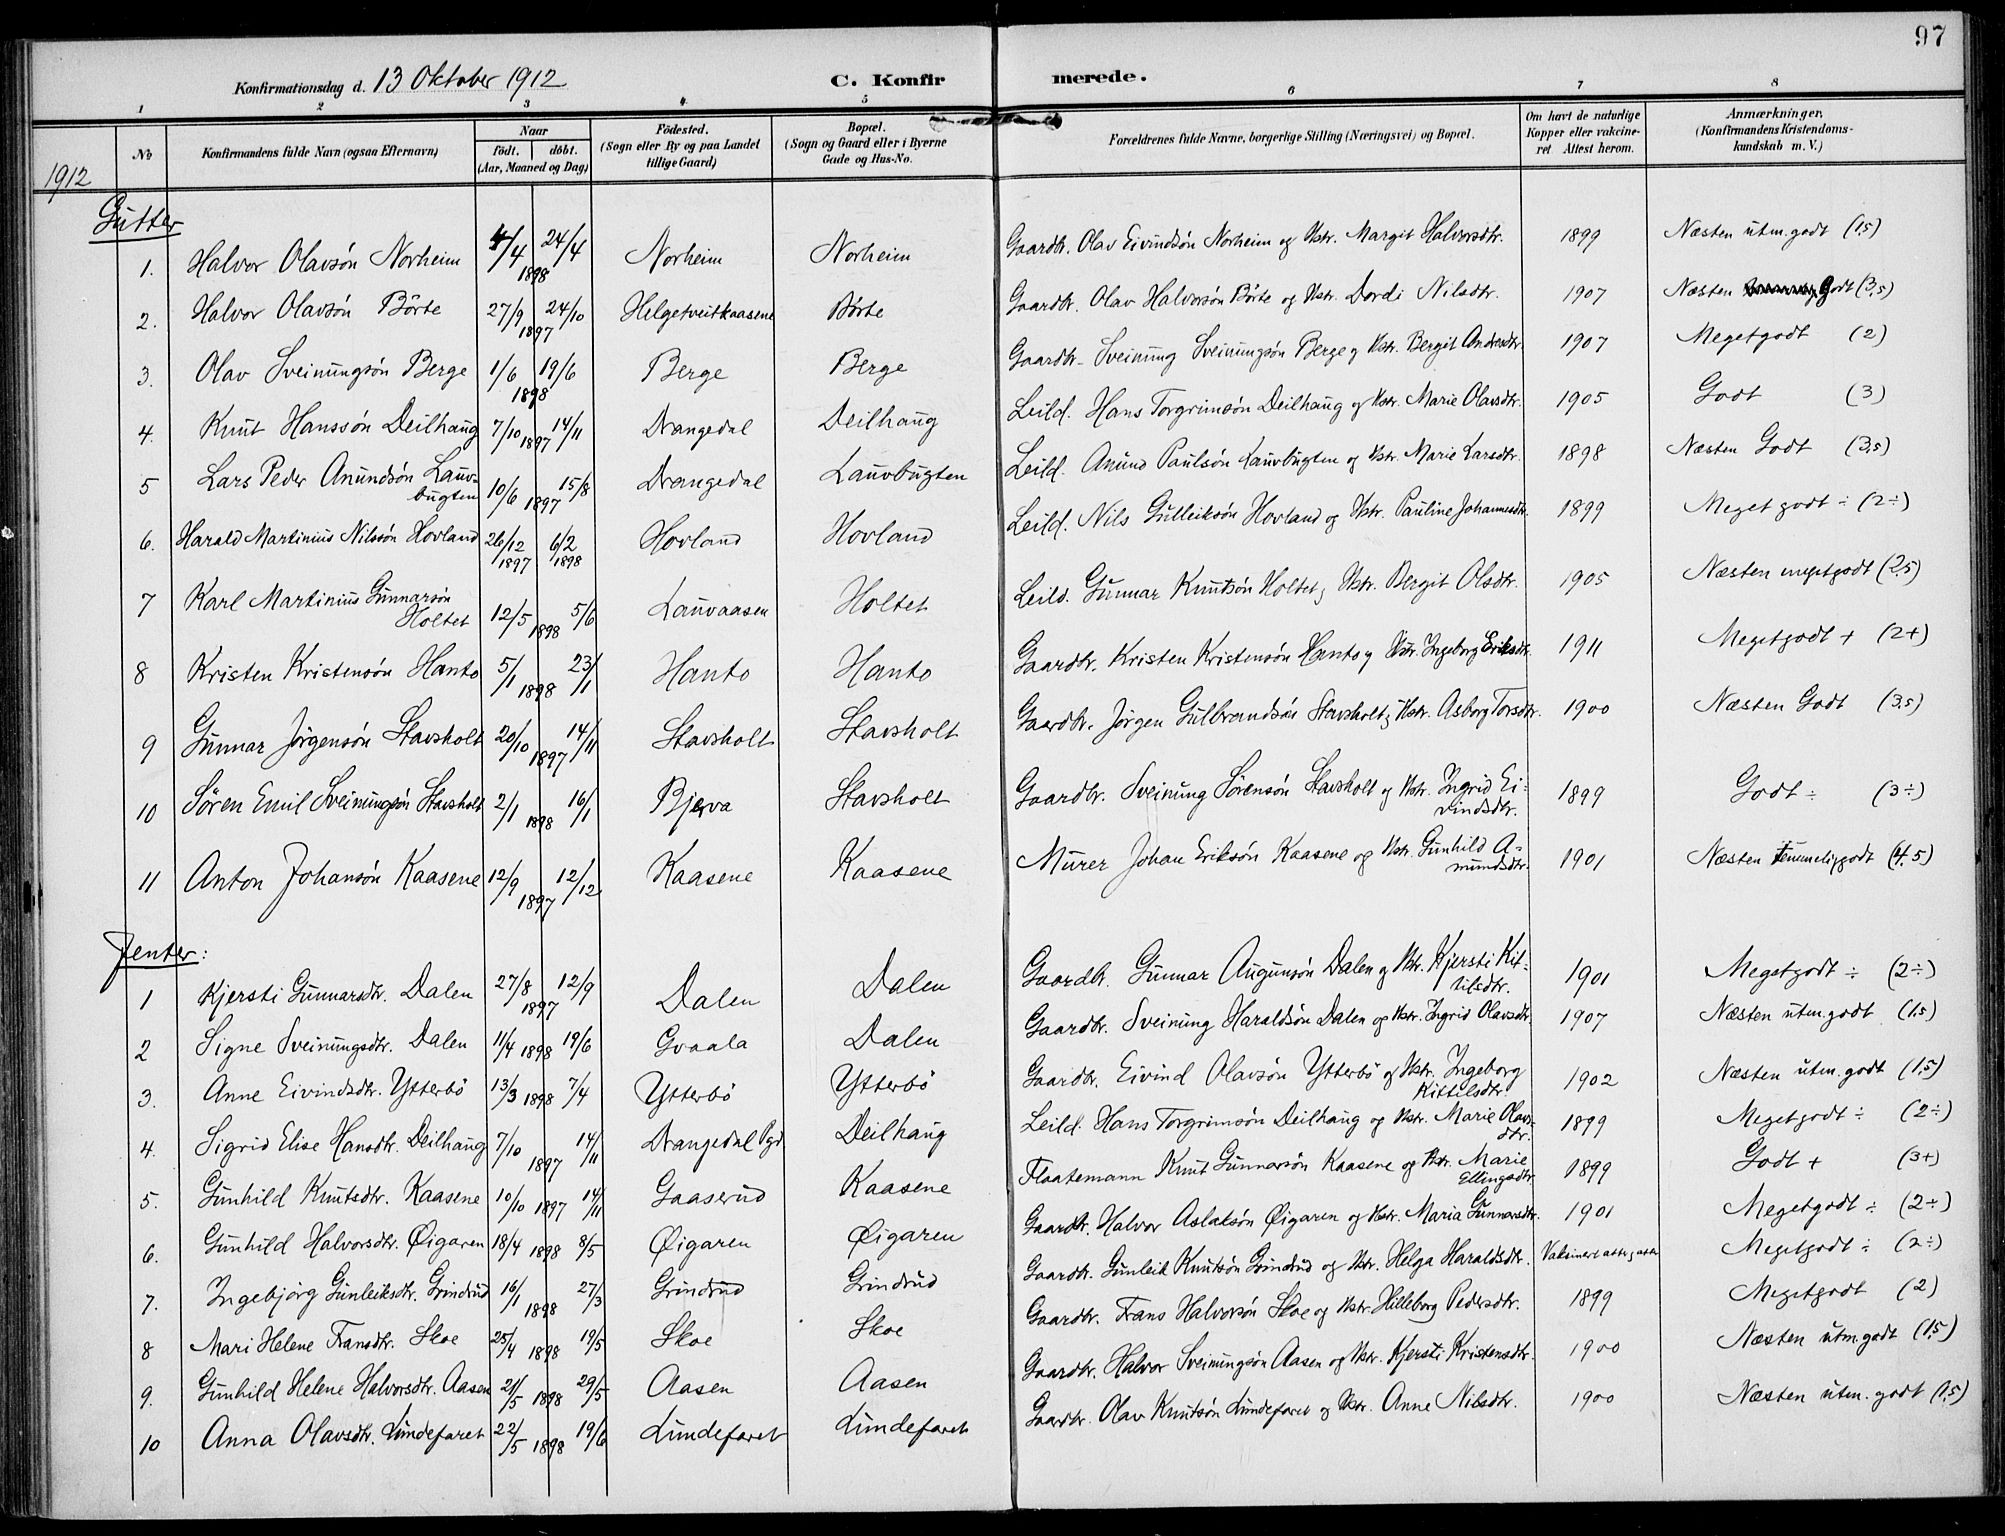 97
Konfirmationsdag d. 13 Oktober 1912 C. Konfirmerede.
1 2 3 4 5 6 7 8
No Konfirmandens fulde Navn (ogsaa Efternavn) Naar født. døbt. (Aar, Maaned og Dag) Fødested. (Sogn eller By og paa Landet tillige Gaard) Bopæl. (Sogn og Gaard eller i Byerne Gade og Hus-No. Forældrenes fulde Navne, borgerlige Stilling (Næringsvei) og Bopæl. Om havt de naturlige Kopper eller vakcineret Attest herom. Anmærkninger, (Konfirmandens Kristendomskundskab m. V.)
1912
Gutter
1. Halvor Olavsön Norheim 4/4 1898 24/4 Norheim Norheim Gaardbr. Olav Eivindsön Norheim og Hstr. Margit Halvorsdtr. 1899 Næsten utm. godt (1,5)
2. Halvor Olavsön Börte 27/9 1897 24/10 Helgetveitkaasene Börte Gaardbr. Olav Halvorsön Börte og Hstr. Dordi Nilsdtr. 1907 Næsten Godt (3,5)
3. Olav Sveinungsön Berge 1/6 1898 19/6 Berge Berge Gaardbr. Sveinung Sveinungsön Berge og Hstr. Bergit Andersdtr. 1907 Megetgodt (2)
4. Knut Hanssön Deilhaug 7/10 1897 14/11 Drangedal Deilhaug Leild. Hans Torgrimsön Deilhaug og Hstr. Marie Olavsdtr. 1905 Godt (3)
5 Lars Peder Anundsön Lauvbugten 10/6 1897 15/8 Drangedal Lauvbugten Leild. Anund Paulsön Lauvbugten og Hstr. Marie Larsdtr. 1898 Næsten Godt (3,5)
6. Harald Martinius Nilssön Hovland 26/12 1897 6/2 1898 Hovland Hovland Leild. Nils Gulleiksön Hovland og Hstr. Pauline Johannesdtr. 1899 Meget godt ÷ (2÷)
7 Karl Martinius Gunnarsön Holtet 12/5 1898 5/6 Lauvaasen Holtet Leild. Gunnar Knutsön Holtet og Hstr. Bergit Olsdtr. 1905 Næsten megetgodt (2,5)
8 Kristen Kristensön Hanto 5/1 1898 23/1 Hanto Hanto Gaardbr. Kristen Kristensön Hanto og Hstr. Ingeborg Eriksdtr. 1911 Megetgodt + (2+)
9 Gunnar Jörgensön Stavsholt 20/10 1897 14/11 Stavsholt Stavsholt Gaardbr. Jörgen Gulbrandsön Stavsholt og Hstr. Asborg Torsdtr. 1900 Næsten Godt (3,5)
10 Sören Emil Sveinungsön Stavsholt 2/1 1898 16/1 Bjerva Stavsholt Gaardbr. Sveinung Sörensön Stavsholt og Hstr. Ingrid Eivindsdtr. 1899 Godt ÷ (3÷)
11 Anton Johansön Kaasene 12/9 1897 12/12 Kaasene Kaasene Murer Johan Eriksön Kaasene og Hstr. Gunhild Amundsdtr. 1901 Næsten temmeliggodt (4,5)
Jenter:
1 Kjersti Gunnarsdtr. Dalen 27/8 1897 12/9 Dalen Dalen Gaardbr. Gunnar Augunsön Dalen og Hstr. Kjersti Kittilsdtr. 1901 Megetgodt ÷ (2÷)
2 Signe Sveinungsdtr. Dalen 11/4 1898 19/6 Gvaala Dalen Gaardbr. Sveinung Haraldsön Dalen og Hstr. Ingrid Olavsdtr. 1907 Næsten utm. godt (1,5)
3. Anne Eivindsdtr. Ytterbö 13/3 1898 7/4 Ytterbö Ytterbö Gaardbr. Eivind Olavsön Ytterbö og Hstr. Ingeborg Kittilsdtr. 1902 Næsten utm. godt (1,5)
4. Sigrid Elise Hansdtr. Deilhaug 7/10 1897 14/11 Drangedal Pgd Deilhaug Leild. Hans Torgrimsön Deilhaug og Hstr. Marie Olavsdtr. 1899 Megetgodt ÷ (2÷)
5. Gunhild Knutsdtr. Kaasene 10/10 1897 14/11 Gaaserud Kaasene Flaatemann Knut Gunnarsön Kaasene og Hstr. Marie Ellingsdtr. 1899 Godt + (3+)
6. Gunhild Halvorsdtr. Øigaren 18/4 1898 8/5 Øigaren Øigaren Gaardbr. Halvor Aslaksön Øigaren og Hstr. Maria Gunnarsdtr. 1901 Megetgodt ÷ (2÷)
7. Ingebjörg Gunleiksdtr. Grindrud 16/1 1898 27/3 Grindrud Grindrud Gaardbr. Gunleik Knutsön Grindrud og Hstr. Helga Haraldsdtr. Vaksinert Megetgodt ÷ (2÷)
8 Mari Helene Fransdtr. Skoe 25/4 1898 19/5 Skoe Skoe Gaardbr. Frans Halvorsön Skoe og Hstr. Hilleborg Pedersdtr. 1899 Megetgodt (2)
9. Gunhild Helene Halvorsdtr. Aasen 21/5 1898 29/5 Aasen Aasen Gaardbr. Halvor Sveinungsön Aasen og Hstr. Kjersti Kristensdtr. 1900 Næsten utm. godt (1,5)
10 Anna Olavsdtr. Lundefaret 22/5 1898 19/6 Lundefaret Lundefaret Gaardbr. Olav Knutsön Lundefaret og Hstr. Anne Nilsdtr. 1900 Næsten utm. godt (1,5)